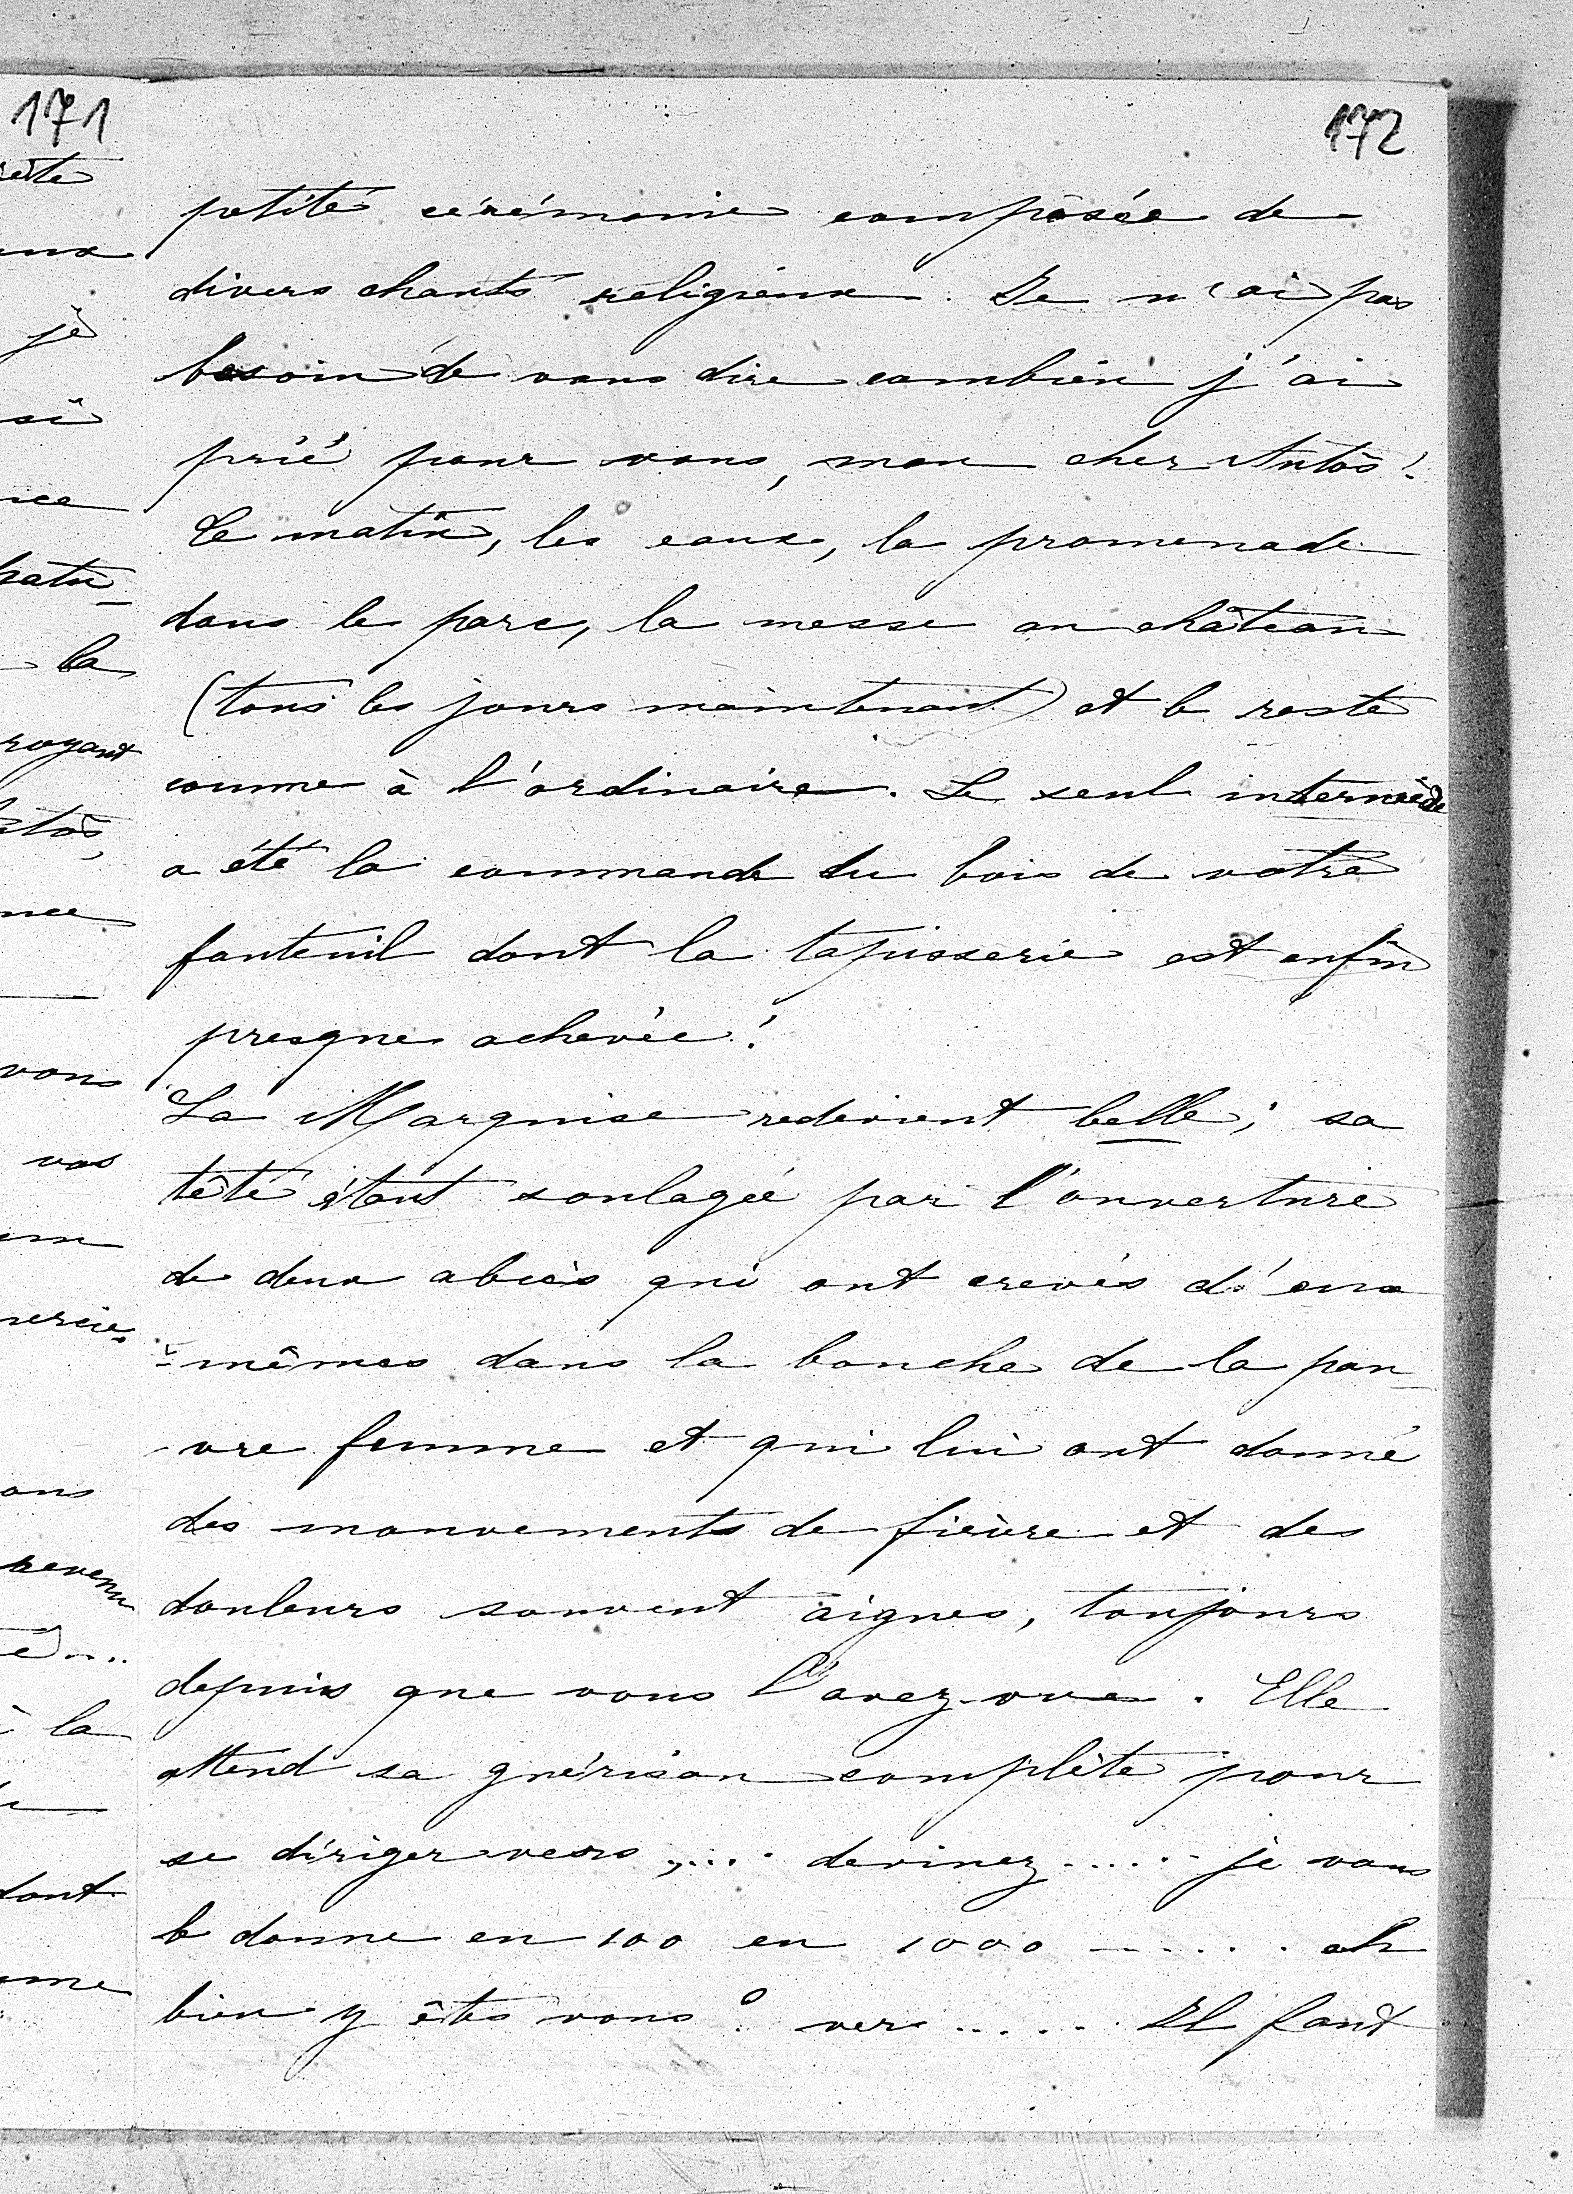 171
172
petite cérémonie composée de
divers chants religieux. Je n'ai pas
besoin de vous dire combien j'ai
prié pour vous, mon cher Antos!
Le matin, les eaux, la promenade
dans le parc, la messe au château
(tous les jours maintenant) et le reste
comme à l'ordinaire. Le seul intermède
a été la commande du bois de votre
fauteuil dont la tapisserie est enfin
presque achevée!
La Marquise redevient belle; sa
tête étant soulagée par l'ouverture
de deux abcès qui ont crevés d'eux
-mêmes dans la bouche de la pau-
vre femme et qui lui ont donné
des mouvements de fièvre et des
douleurs souvent aigues, toujours
depuis que vous l'avez vue. Elle
attend sa guérison complète pour
se diriger vers .... devinez ..... je vous
le donne en 100 en 1000 ...... eh
bien y êtes vous? vers ..... Il faut
je
la
royant
vous
vos
revenu
à la
dont